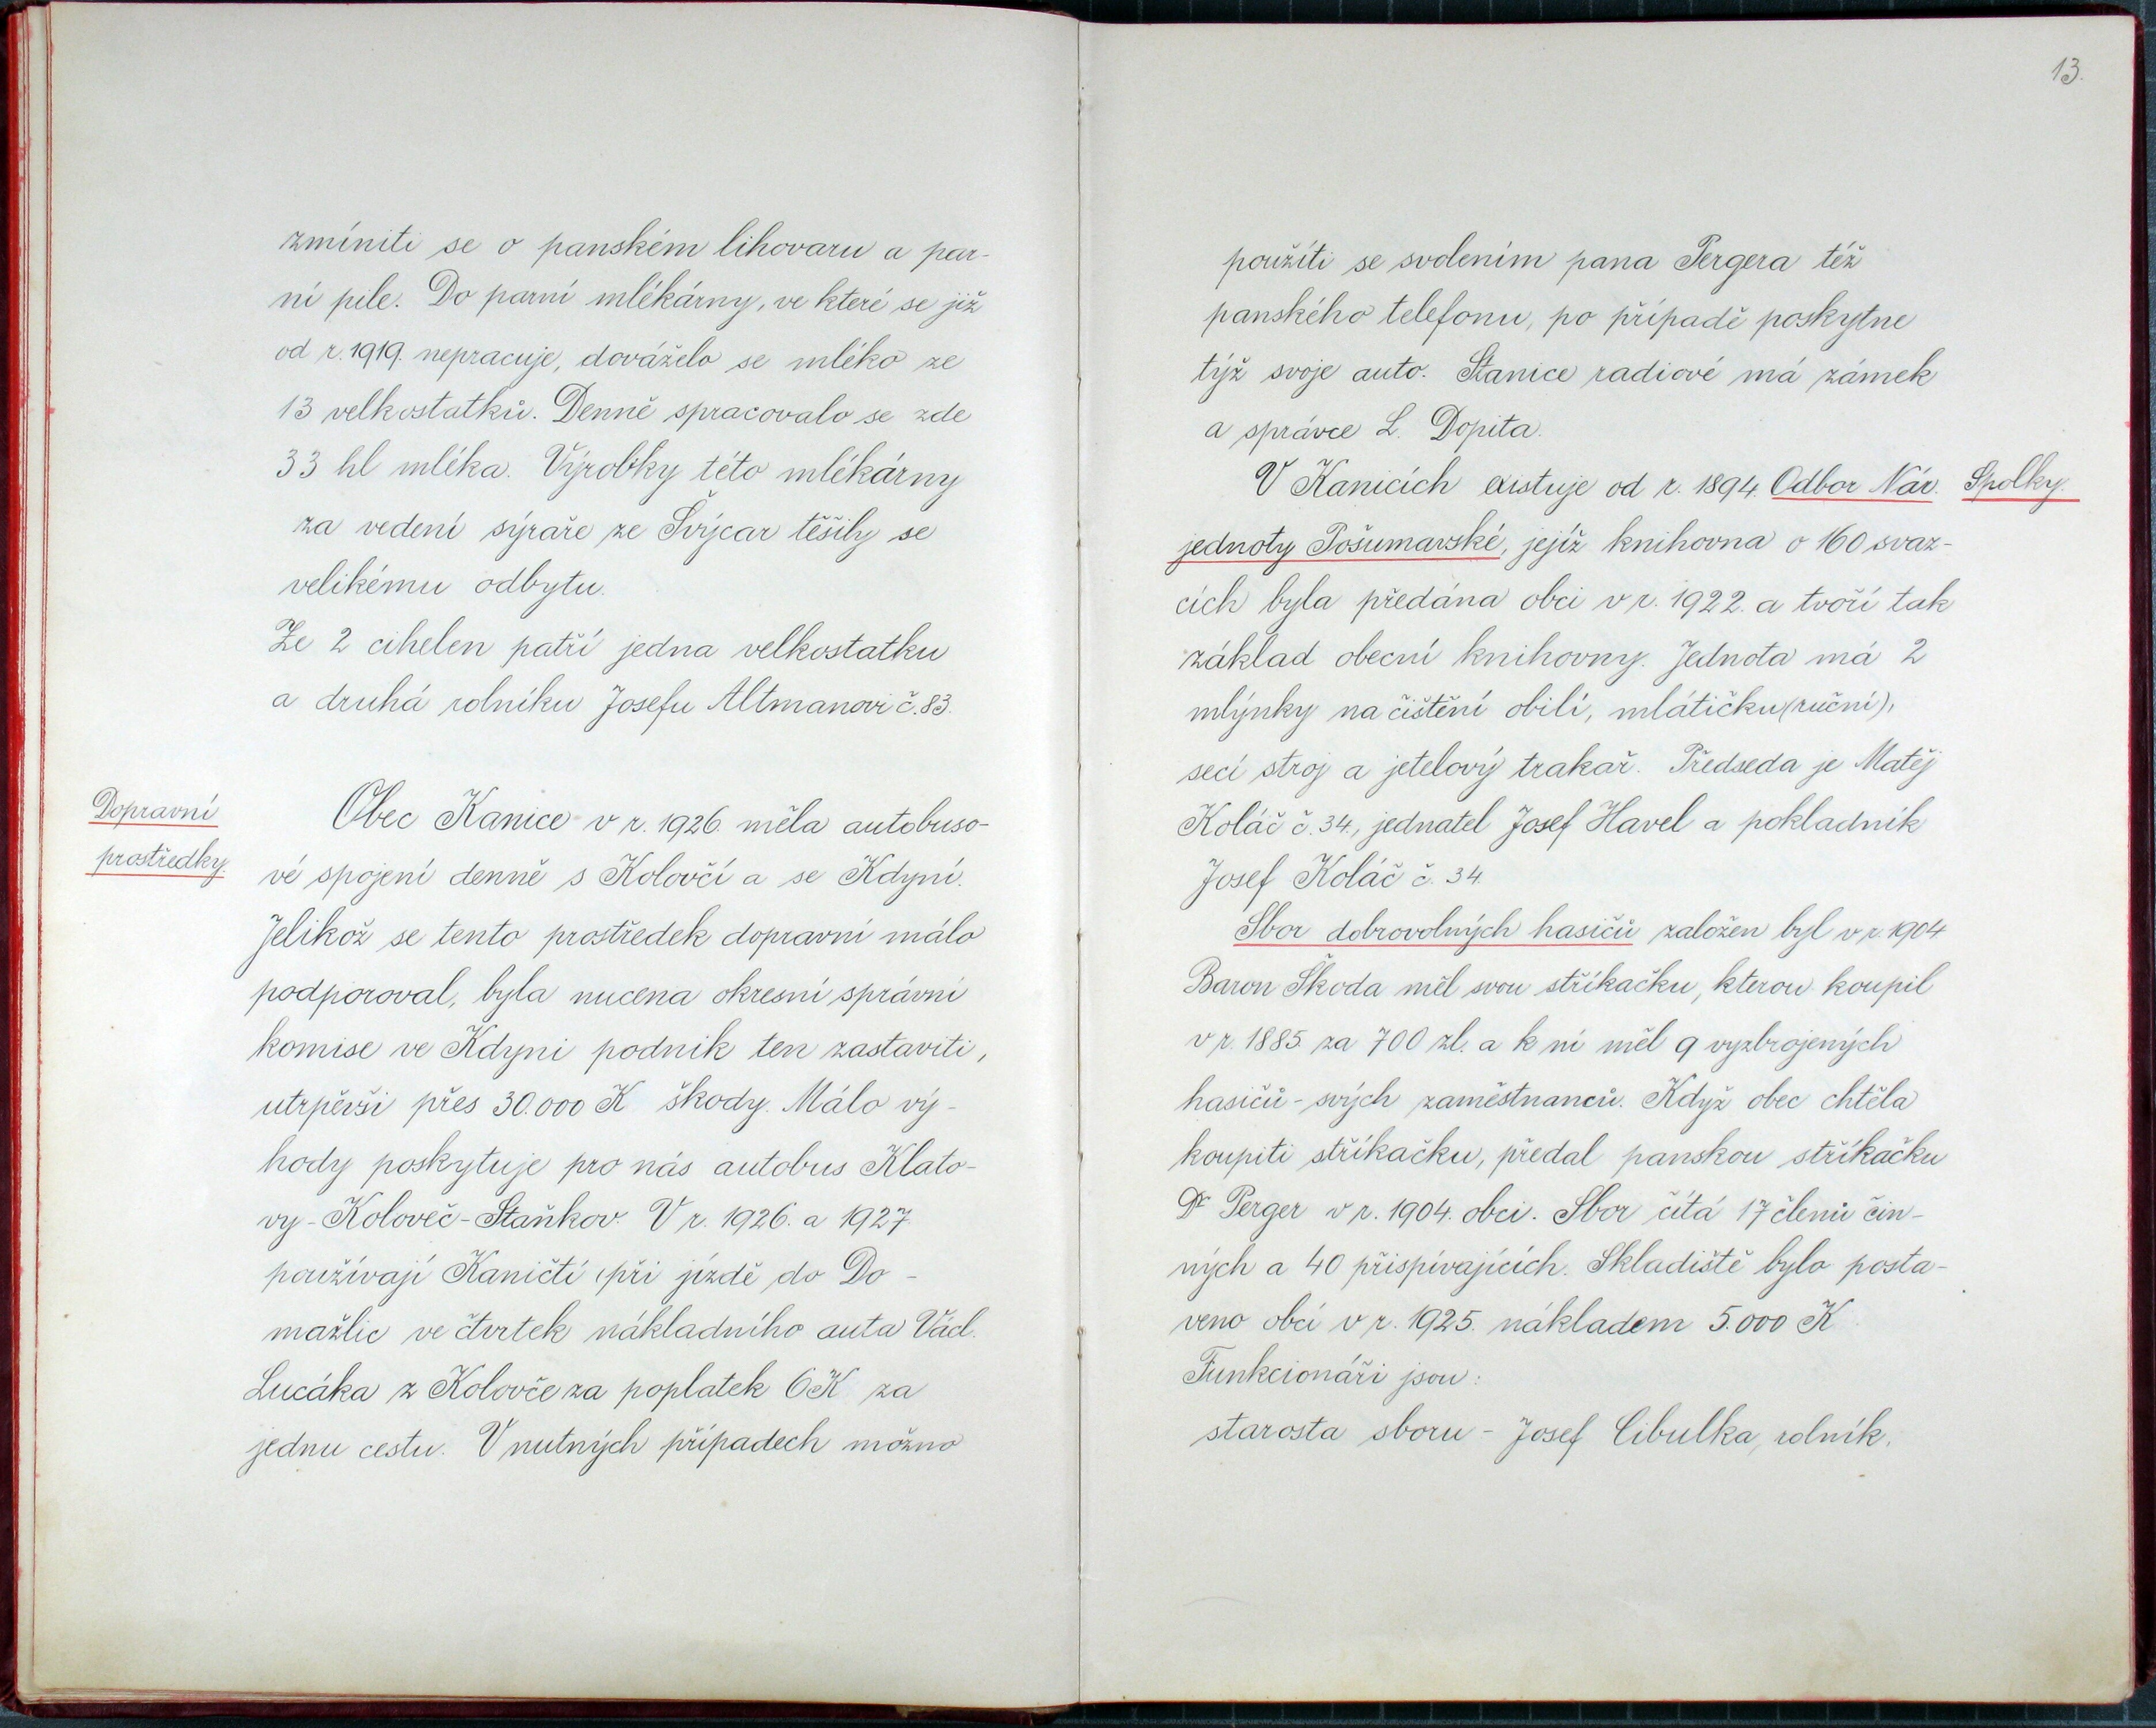 zmíniti se o panském lihovaru a par-
ní pile. Do parní mlékárny, ve které se již
od r. 1919. nepracuje, dováželo se mléko ze
13 velkostatků. Denně spracovalo se zde
33 hl mléka. Výrobky této mlékárny
za vedení sýraře ze Švýcar těšily se
velikému odbytu.
Ze 2 cihelen patří jedna velkostatku
a druhá rolníku Josefu Altmanovi č. 83.
Dopravní
prostředky.
Obec Kanice v r. 1926. měla autobuso-
vé spojení denně s Kolovčí a se Kdyní.
Jelikož se tento prostředek dopravní málo
podporoval, byla nucena okresní správní
komise ve Kdyni podnik ten zastaviti,
utrpěvši přes 30.000 K škody. Málo vý-
hody poskytuje pro nás autobus Klato-
vy - Koloveč - Staňkov. V r. 1926. a 1927
používají Kaničtí při jízdě do Do-
mažlic ve čtvrtek nákladního auta Václ.
Lucáka z Kolovče za poplatek 6 K za
jednu cestu. V nutných případech možno
13.
použíti se svolením pana Pergera též
panského telefonu, po případě poskytne
týž svoje auto. Stanice radiové má zámek
a správce L. Dopita.
V Kanicích existuje od r. 1894. Odbor Nár.
Spolky.
jednoty Pošumavské, jejíž knihovna o 160 svaz-
cích byla předána obci v r. 1922. a tvoří tak
základ obecní knihovny. Jednota má 2
mlýnky na čištění obilí, mlátičku (ruční),
secí stroj a jetelový trakař. Předseda je Matěj
Koláč č. 34., jednatel Josef Havel a pokladník
Josef Koláč č. 34.
Sbor dobrovolných hasičů založen byl v r. 1904
Baron Škoda měl svou stříkačku, kterou koupil
v r. 1885. za 700 zl. a k ní měl 9 vyzbrojených
hasičů - svých zaměstnanců. Když obec chtěla
koupiti stříkačku, předal panskou stříkačku
Dr Perger v r. 1904. obci. Sbor čítá 17 členů čin-
ných a 40 přispívajících. Skladiště bylo posta-
veno obcí v r. 1925. nákladem 5.000 K
Funkcionáři jsou:
starosta sboru - Josef Cibulka, rolník.